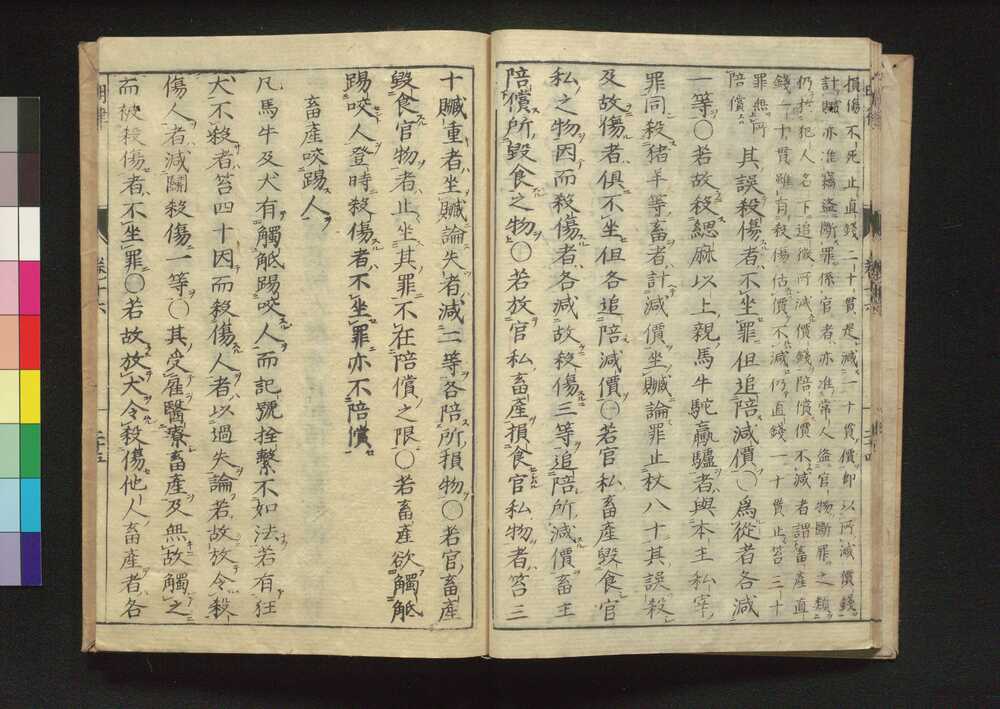 損傷不死止直錢二十貫是減一十貫價卽以所減價錢
計贓亦准竊盜斷罪係官者亦准常人盜官物斷罪之類
仍於犯人名下追徵所減價錢陪償價不減者謂畜產直
錢一十貫雖有殺傷估價不減仍直錢一十貫止笞三十
罪無所
陪償
其誤殺傷者不坐罪但追陪減價〇爲從者各減
一等〇若故殺緦麻以上親馬牛駝驘驢者與本主私宰
罪同殺猪羊等畜者計減價坐贓論罪止杖八十其誤殺
及故傷者俱不坐但各追陪減價〇若官私畜產毀食官
私之物因而殺傷者各減故殺傷三等追陪所減價畜主
陪償所毀食之物〇若放官私畜產損食官私物者笞三
十贓重者坐贓論失者減二等各陪所損物〇若官畜產
毀食官物者止坐其罪不在陪償之限〇若畜產欲觸觝
踢咬人登時殺傷者不坐罪亦不陪償
畜產咬踢人
凡馬牛及犬有觸觝踢咬人而記號拴繫不如法若有狂
犬不殺者笞四十因而殺傷人者以過失論若故放令殺
傷人者減鬪殺傷一等〇其受雇醫療畜產及無故觸之
而被殺傷者不坐罪〇若故放犬令殺傷他人畜產者各
明律
卷十六
二十五